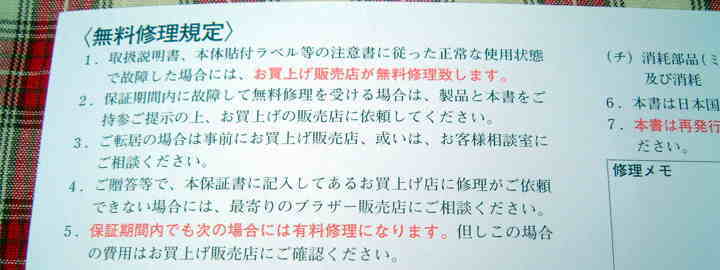 〈無料修理規定〉
1．取扱説明書、本体貼付ラベル等の注意書に従った正常な使用状態
で故障した場合には、お買上げ販売店が無料修理致します。
2．保証期間内に故障して無料修理を受ける場合は、製品と本書をご
持参ご提示の上、お買上げの販売店に依頼してください。
3．ご転居の場合は事前にお買上げ販売店、或いは、お客様相談室に
ご相談ください。
4．ご贈答等で、本保証書に記入してあるお買上げ店に修理がご依頼
できない場合には、最寄りのブラザー販売店にご相談ください。
5．保証期間内でも次の場合には有料修理になります。但しこの場合
の費用はお買上げ販売店にご確認ください。
(チ) 消耗部品(ミ
及び消耗
6．本書は日本国
7．本書は再発行
ださい。
修理メモ